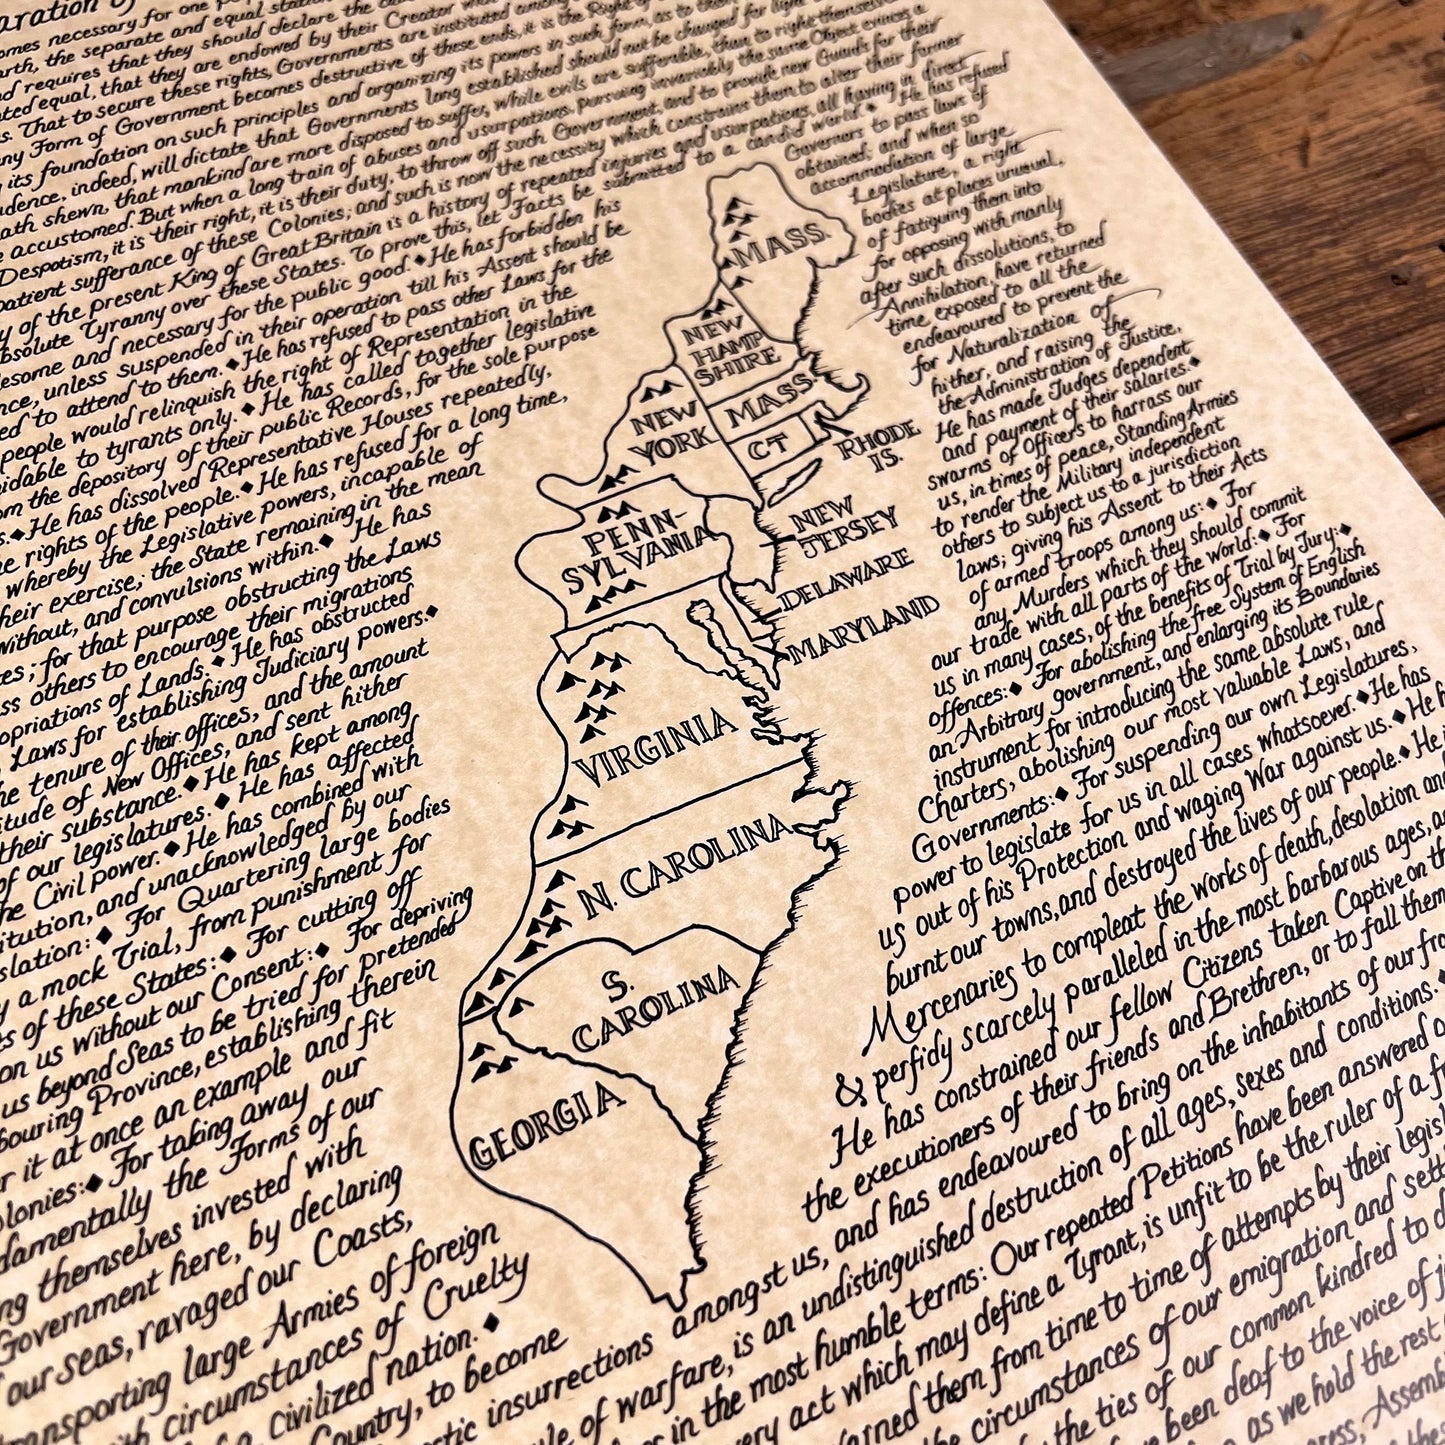 aration of
omes necessary for one
arth, the separate and equal
nd requires that they should declare the
ted equal, that they are endowed by their Creator
s. That to secure these rights, Governments are instituted among
ny Form of Government becomes destructive of these ends, it is the Right of
its foundation on such principles and organizing its powers in such form, as to
dence, indeed, will dictate that Governments long established should not be changed for light
ath shewn, that mankind are more disposed to suffer, while evils are sufferable, than to right themselves
accustomed. But when a long train of abuses and usurpations, pursuing invariably the same Object evinces a
Despotism, it is their right, it is their duty, to throw off such Government, and to provide new Guards for their
patient sufferance of these Colonies; and such is now the necessity which constrains them to alter their former
y of the present King of Great Britain is a history of repeated injuries and usurpations, all having in direct
bsolute Tyranny over these States. To prove this, let Facts be submitted to a candid world.♦ He has refused
lesome and necessary for the public good.♦He has forbidden his Governors to pass laws of
nce, unless suspended in their operation till his Assent should be obtained; and when so
ed to attend to them.♦He has refused to pass other Laws for the accommodation of large
people would relinquish the right of Representation in the Legislature, a right
idable to tyrants only.♦He has called together legislative bodies at places unusual,
om the depository of their public Records, for the sole purpose of fatiguing them into
s.♦He has dissolved Representative Houses repeatedly, for opposing with manly
e rights of the people.♦He has refused for a long time, after such dissolutions, to
whereby the Legislative powers, incapable of Annihilation, have returned
heir exercise; the State remaining in the mean time exposed to all the
without, and convulsions within.♦ He has endeavoured to prevent the
es; for that purpose obstructing the Laws for Naturalization of
ss others to encourage their migrations hither, and raising the
opriations of Lands.♦ He has obstructed the Administration of Justice,
Laws for establishing Judiciary powers.♦ He has made Judges dependent
he tenure of their offices, and the amount and payment of their salaries.♦
itude of New Offices, and sent hither swarms of Officers to harrass our
their substance.♦He has kept among us, in times of peace, Standing Armies
of our legislatures.♦ He has affected to render the Military independent
he Civil power.♦He has combined with others to subject us to a jurisdiction
itution, and unacknowledged by our laws; giving his Assent to their Acts
slation:♦ For Quartering large bodies of armed troops among us:♦ For
y a mock Trial, from punishment for any Murders which they should commit
ts of these States:♦ For cutting off our trade with all parts of the world:♦ For
on us without our Consent:♦ For depriving us in many cases, of the benefits of Trial by Jury:♦
us beyond Seas to be tried for pretended offences:♦ For abolishing the free System of English
bouring Province, establishing therein an Arbitrary government, and enlarging its Boundaries
r it at once an example and fit instrument for introducing the same absolute rule
olonies:♦ For taking away our Charters, abolishing our most valuable Laws, and
damentally the Forms of our Governments:♦ For suspending our own Legislatures,
ng themselves invested with power to legislate for us in all cases whatsoever.♦He has
Government here, by declaring us out of his Protection and waging War against us.♦He h
our seas, ravaged our Coasts, burnt our towns, and destroyed the lives of our people.♦He i
ansporting large Armies of foreign Mercenaries to compleat the works of death, desolation and
th circumstances of Cruelty & perfidy scarcely paralleled in the most barbarous ages, a
a civilized nation.♦ He has constrained our fellow Citizens taken Captive on th
Country, to become the executioners of their friends and Brethren, or to fall them
estic insurrections amongst us, and has endeavoured to bring on the inhabitants of our fro
ule of warfare, is an undistinguished destruction of all ages, sexes and conditions.
in the most humble terms: Our repeated Petitions have been answered
ery act which may define a Tyrant, is unfit to be the ruler of a f
arned them from time to time of attempts by their legisl
e circumstances of our emigration and sett
the ties of our common kindred to
been deaf to the voice of j
as we hold the rest
ress, Assemb
MASS.
NEW
HAMP
SHIRE
MASS.
NEW
YORK
CT
RHODE
IS.
PENN-
SYLVANIA
NEW
JERSEY
DELAWARE
MARYLAND
VIRGINIA
N. CAROLINA
S.
CAROLINA
GEORGIA